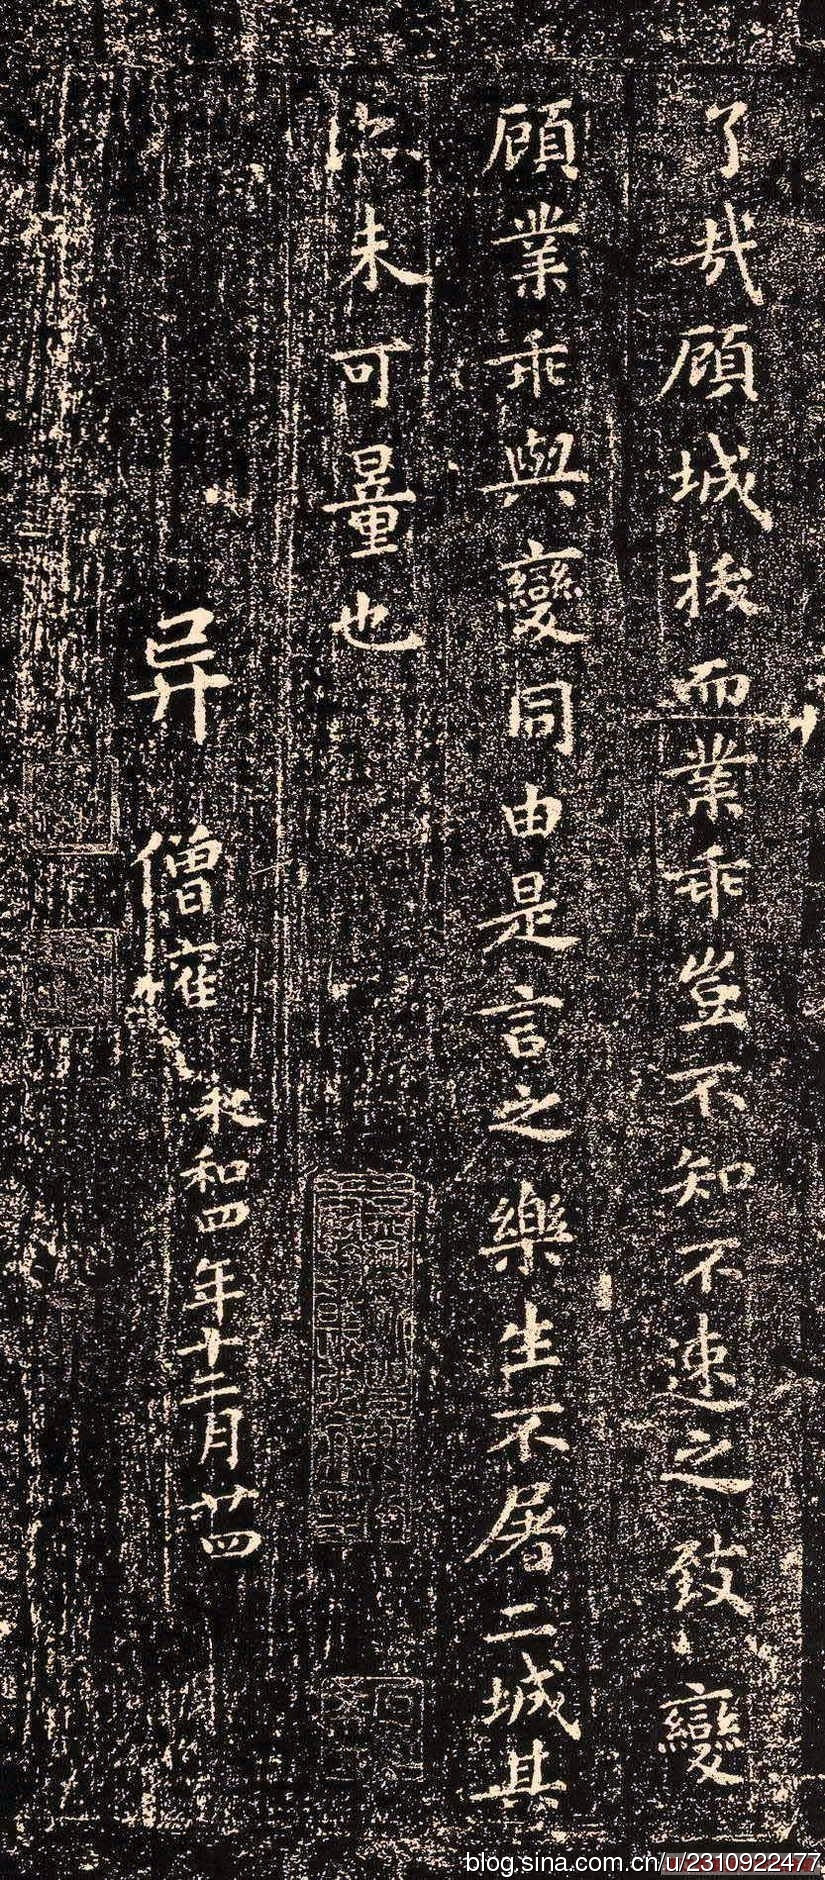 了哉顧城拔而業乖豈不知不速之致變
顧業乖與變同由是言之樂生不屠二城其
未可量也
异 僧雍
永和四年十二月廿四
blog.sina.com.cn/u/2310922477